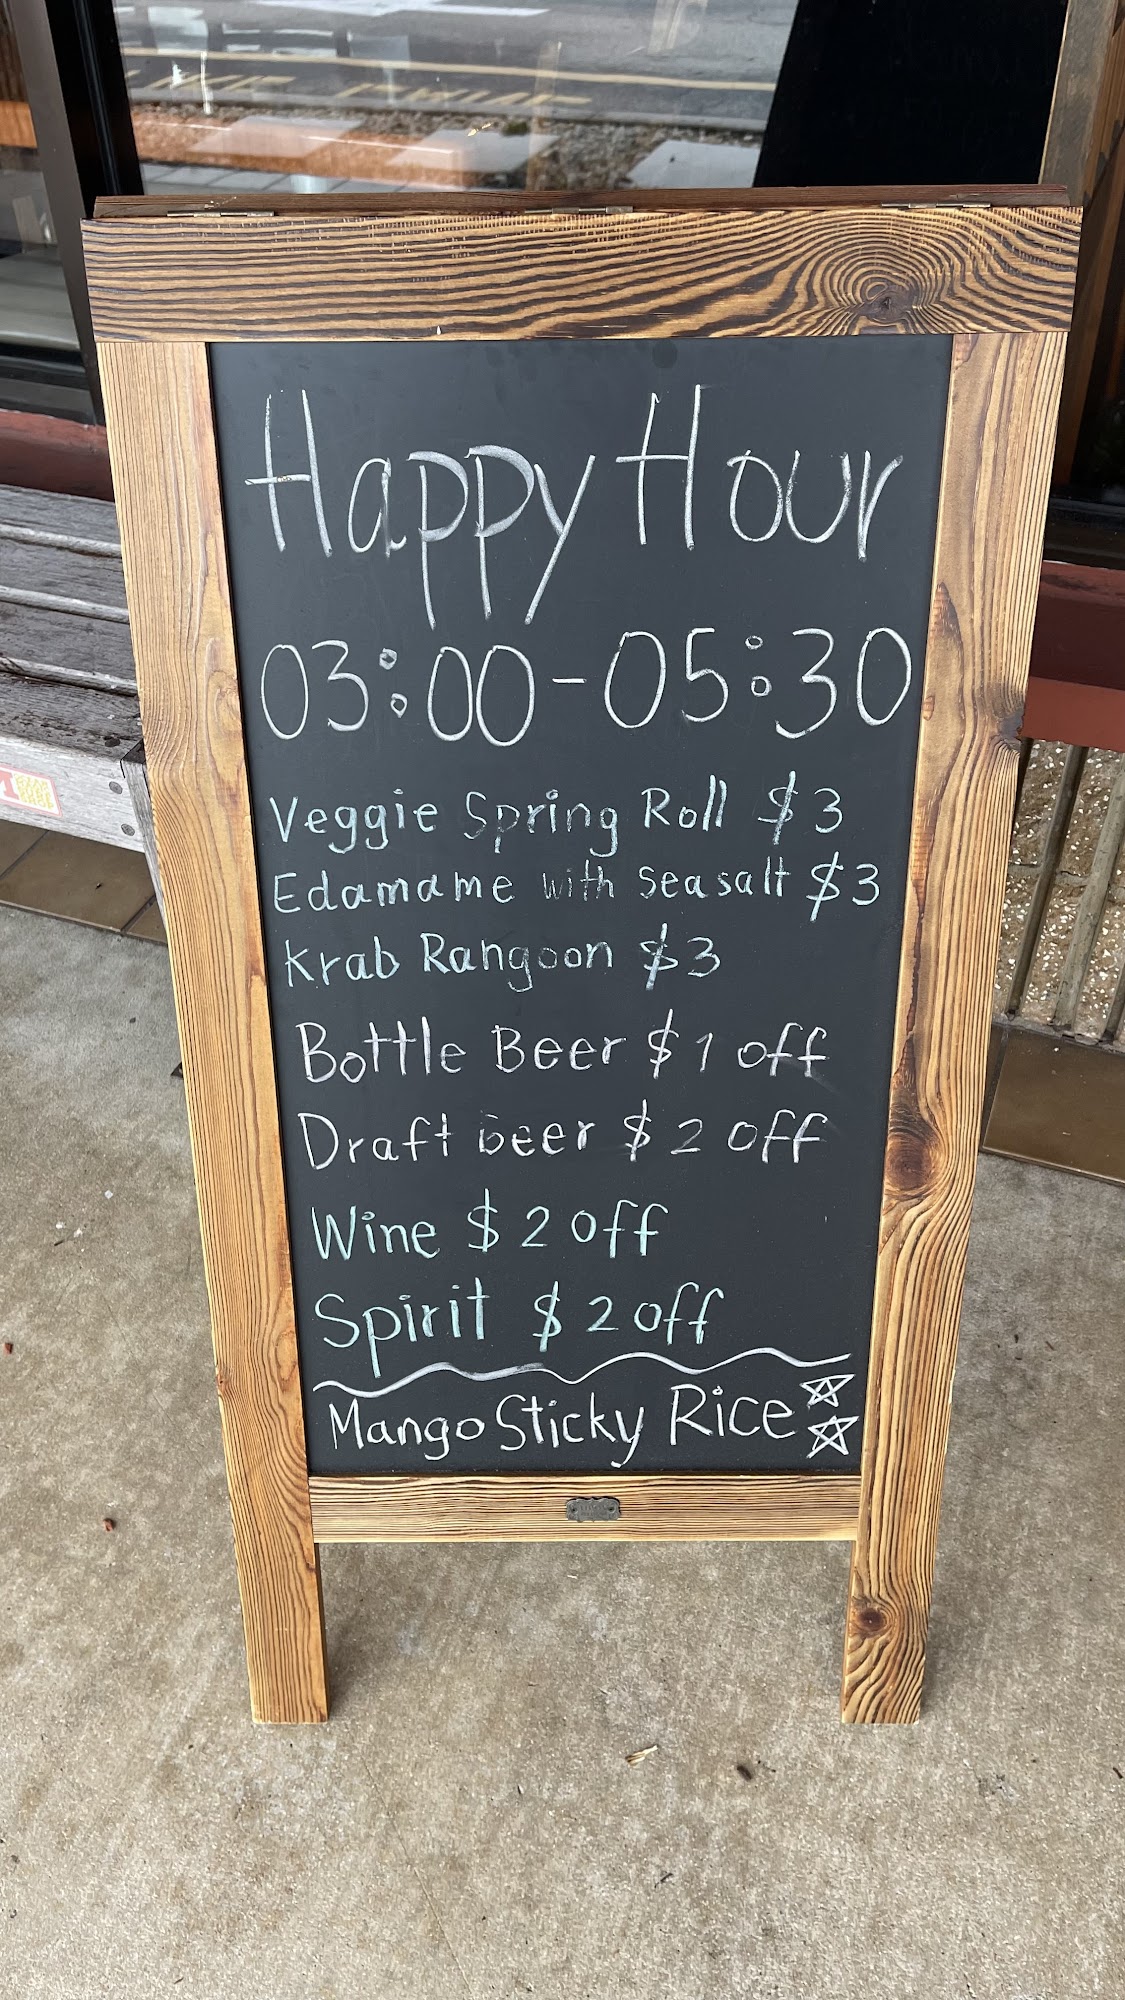 Happy Hour
03:00-05:30
Veggie Spring Roll $3
Edamame with sea salt $3
Krab Rangoon $3
Bottle Beer $1 off
Draft beer $2 off
Wine $2 off
Spirit $2 off
Mango Sticky Rice